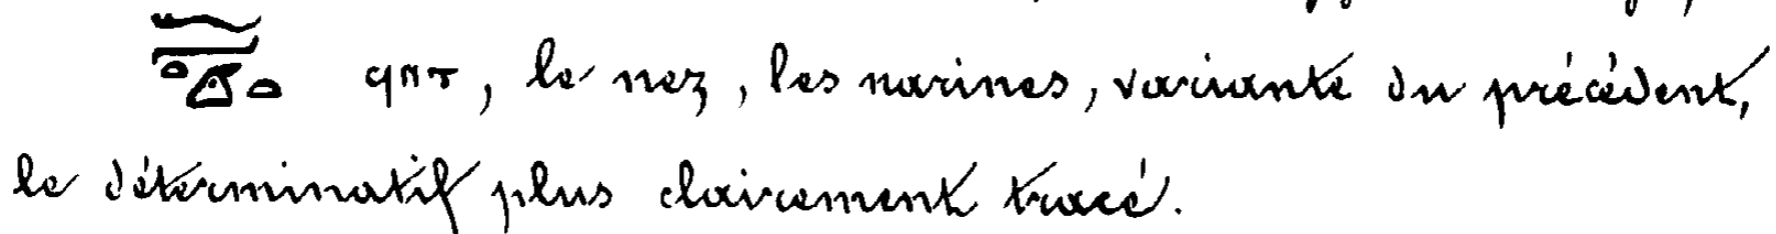 ϥⲛⲧ, le nez, les narines, variante du précédent,
le déterminatif plus clairement tracé.